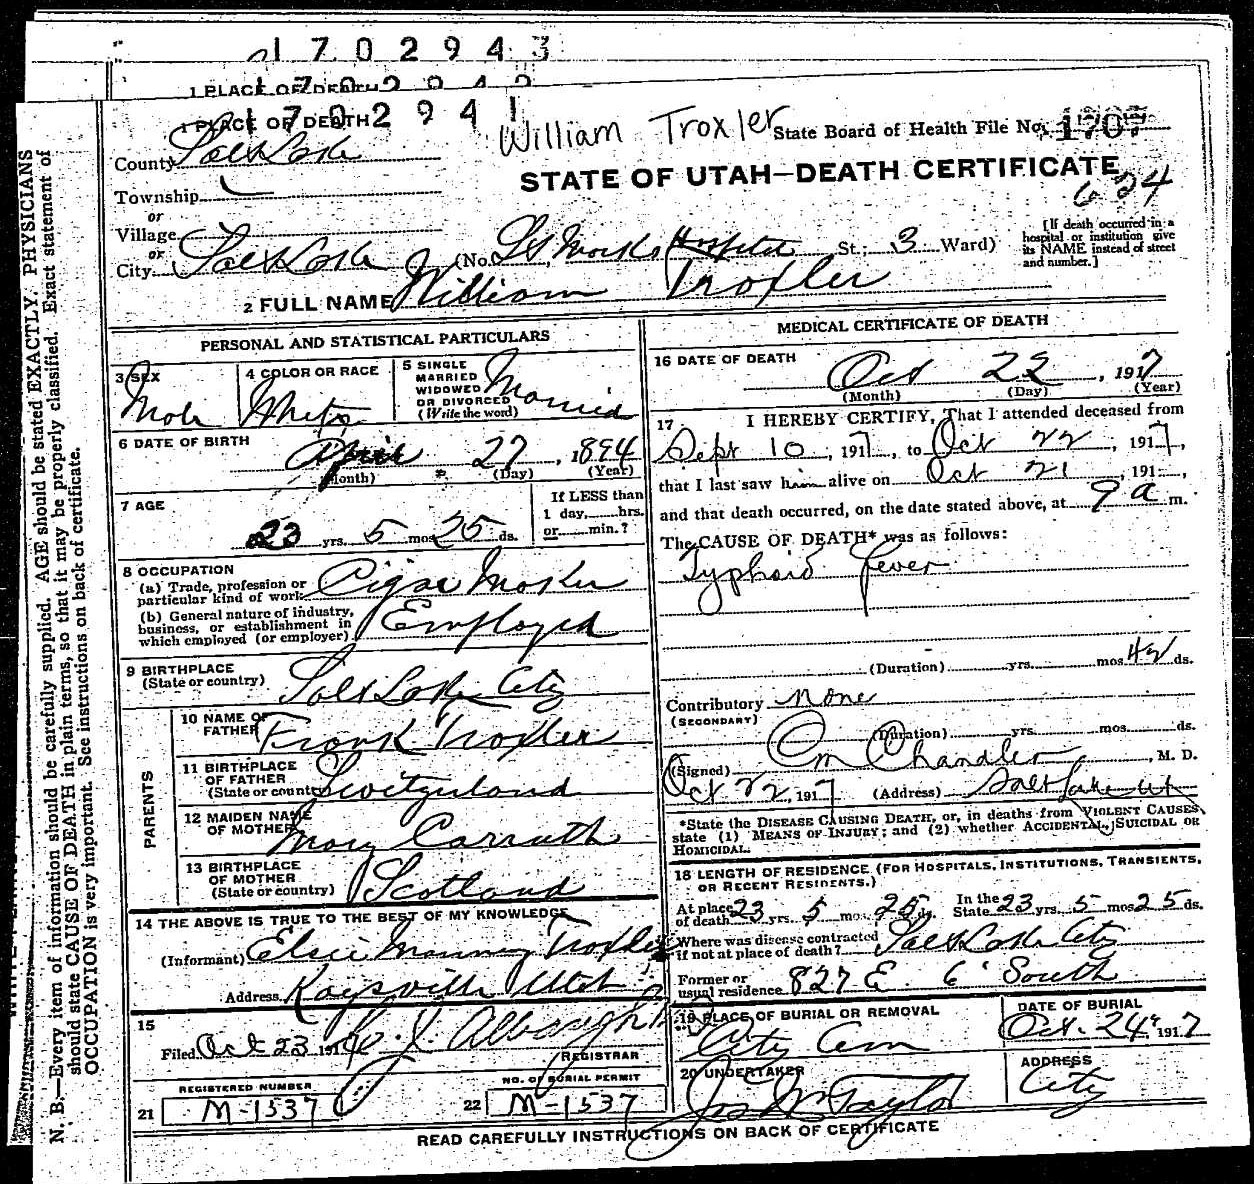 1702943
1 PLACE OF DEATH 1702942
1702941
1 PLACE OF DEATH
William Troxler
State Board of Health File No. 1707
County Salt Lake
STATE OF UTAH—DEATH CERTIFICATE
624
Township
or
Village
or
City Salt Lake (No. St Marks Hospital St.; 3 Ward)
[If death occurred in a hospital or institution give its NAME instead of street and number.]
2 FULL NAME William Troxler
PERSONAL AND STATISTICAL PARTICULARS
3 SEX
Male
4 COLOR OR RACE
White
5 SINGLE MARRIED WIDOWED OR DIVORCED (Write the word)
Married
6 DATE OF BIRTH
April 27, 1894
(Month) (Day) (Year)
7 AGE
23 yrs. 5 mos. 25 ds.
If LESS than 1 day,......hrs. or......min.?
8 OCCUPATION
(a) Trade, profession or particular kind of work Cigar Maker
(b) General nature of industry, business, or establishment in which employed (or employer) Employed
9 BIRTHPLACE (State or country) Salt Lake City
PARENTS
10 NAME OF FATHER Frank Troxler
11 BIRTHPLACE OF FATHER (State or country) Switzerland
12 MAIDEN NAME OF MOTHER Mary Carruth
13 BIRTHPLACE OF MOTHER (State or country) Scotland
14 THE ABOVE IS TRUE TO THE BEST OF MY KNOWLEDGE
(Informant) Elsie Manning Troxler
Address Kaysville Utah
15
Filed Oct 23 191
REGISTRAR
REGISTERED NUMBER
21 M-1537
NO. OF BURIAL PERMIT
22 M-1537
MEDICAL CERTIFICATE OF DEATH
16 DATE OF DEATH
Oct 22, 1917
(Month) (Day) (Year)
17 I HEREBY CERTIFY, That I attended deceased from
Sept 10, 1917, to Oct 22, 1917,
that I last saw him alive on Oct 21, 191,
and that death occurred, on the date stated above, at 9 a m.
The CAUSE OF DEATH* was as follows:
Typhoid fever
(Duration) yrs. mos. 42 ds.
Contributory none
(SECONDARY)
(Duration) yrs. mos. ds.
(Signed) Chandler, M. D.
Oct 22, 1917 (Address) Salt Lake Ut
*State the DISEASE CAUSING DEATH, or, in deaths from VIOLENT CAUSES, state (1) MEANS OF INJURY; and (2) whether ACCIDENTAL, SUICIDAL OR HOMICIDAL.
18 LENGTH OF RESIDENCE (FOR HOSPITALS, INSTITUTIONS, TRANSIENTS, OR RECENT RESIDENTS.)
At place of death 23 yrs. 5 mos. 25 ds. In the State 23 yrs. 5 mos. 25 ds.
Where was disease contracted if not at place of death? Salt Lake City
Former or usual residence 827 E. 6 South
19 PLACE OF BURIAL OR REMOVAL
City Cem
DATE OF BURIAL
Oct. 24, 1917
20 UNDERTAKER
Jos Wm Taylor
ADDRESS
City
READ CAREFULLY INSTRUCTIONS ON BACK OF CERTIFICATE
N. B.—Every item of information should be carefully supplied. AGE should be stated EXACTLY. PHYSICIANS
should state CAUSE OF DEATH in plain terms, so that it may be properly classified. Exact statement of
OCCUPATION is very important. See instructions on back of certificate.